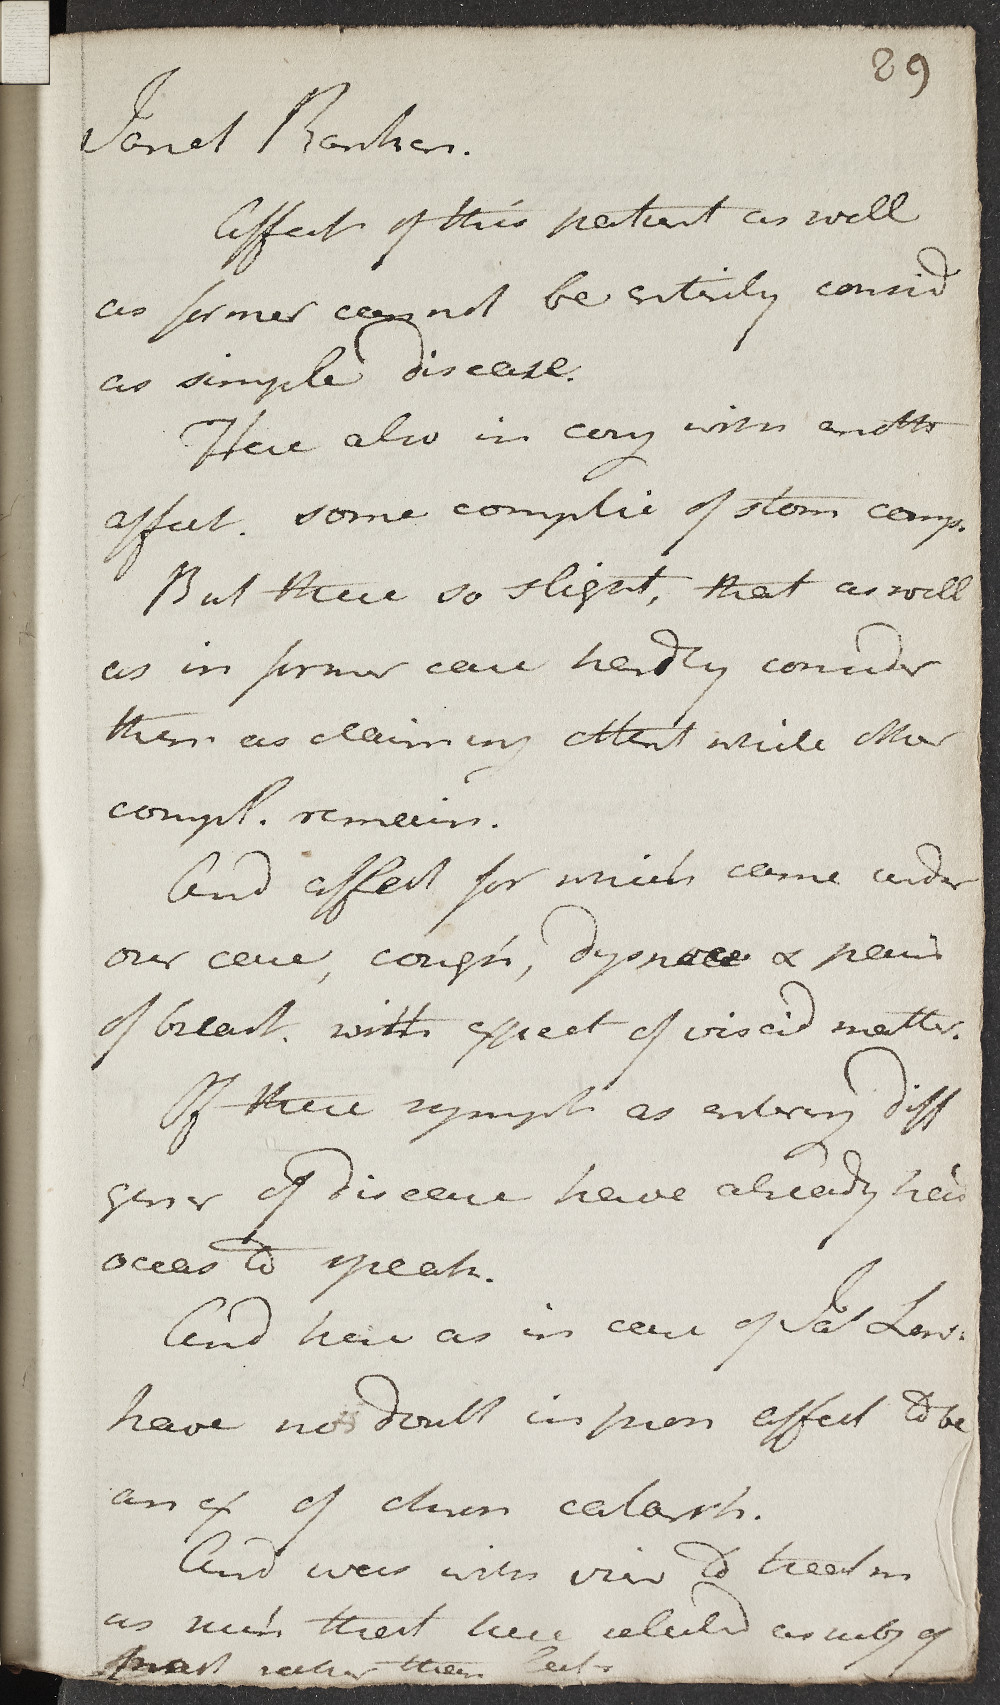 89
Janet Ranken.
Affect of this patient as well
as former cannot be entirely consid
as simple disease.
Here also in conj with anoth
affect. some complic of stom comp.
But these so slight, that as well
as in former case hardly consider
them as claiming attent while other
compl. remain.
And affect for which came under
our care, cough, dyspnoea & pain
of breast. with expect of viscid matter.
Of these sympt as entering diff
gener of disease have already had
occas to speak.
And here as in case of Jas Low:
have no doubt in pron affect to be
an ex of chron catarrh.
And was with view to treatm
as much that here select as subj of
rather than lect